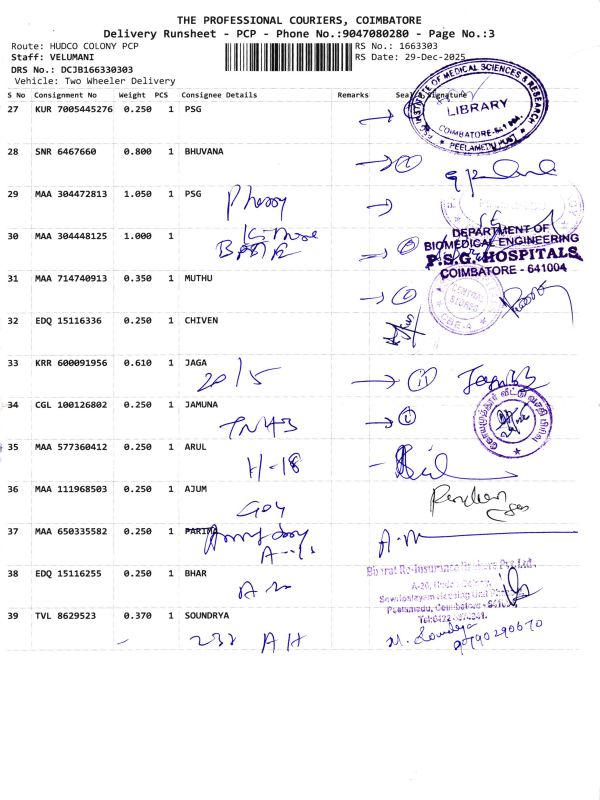 THE PROFESSIONAL COURIERS, COIMBATORE
Delivery Runsheet - PCP - Phone No.:9047080280 - Page No.:3
Route: HUDCO COLONY PCP RS No.: 1663303
Staff: VELUMANI RS Date: 29-Dec-2025
DRS No.: DCJB166330303
Vehicle: Two Wheeler Delivery
S No Consignment No Weight PCS Consignee Details Remarks Seal & Signature
27 KUR 7005445276 0.250 1 PSG
INSTITUTE OF MEDICAL SCIENCES & RESEARCH
LIBRARY
COIMBATORE-641 004.
* PEELAMEDU POST *
28 SNR 6467660 0.800 1 BHUVANA
29 MAA 304472813 1.050 1 PSG
30 MAA 304448125 1.000 1
DEPARTMENT OF
BIOMEDICAL ENGINEERING
P.S.G. HOSPITALS
COIMBATORE - 641004
31 MAA 714740913 0.350 1 MUTHU
CENTRAL
STORES
CBE-4
32 EDQ 15116336 0.250 1 CHIVEN
33 KRR 600091956 0.610 1 JAGA
20/5 → 11
34 CGL 100126802 0.250 1 JAMUNA
TN43
35 MAA 577360412 0.250 1 ARUL
H-18
36 MAA 111968503 0.250 1 AJUM
37 MAA 650335582 0.250 1 PARIMA
A.m
38 EDQ 15116255 0.250 1 BHAR
Bharat Re-Insurance Brokers Pvt. Ltd.
Sowripalayam Housing Unit
Peelamedu, Coimbatore - 641
39 TVL 8629523 0.370 1 SOUNDRYA
232 AH
M. Soundrya
9790290670